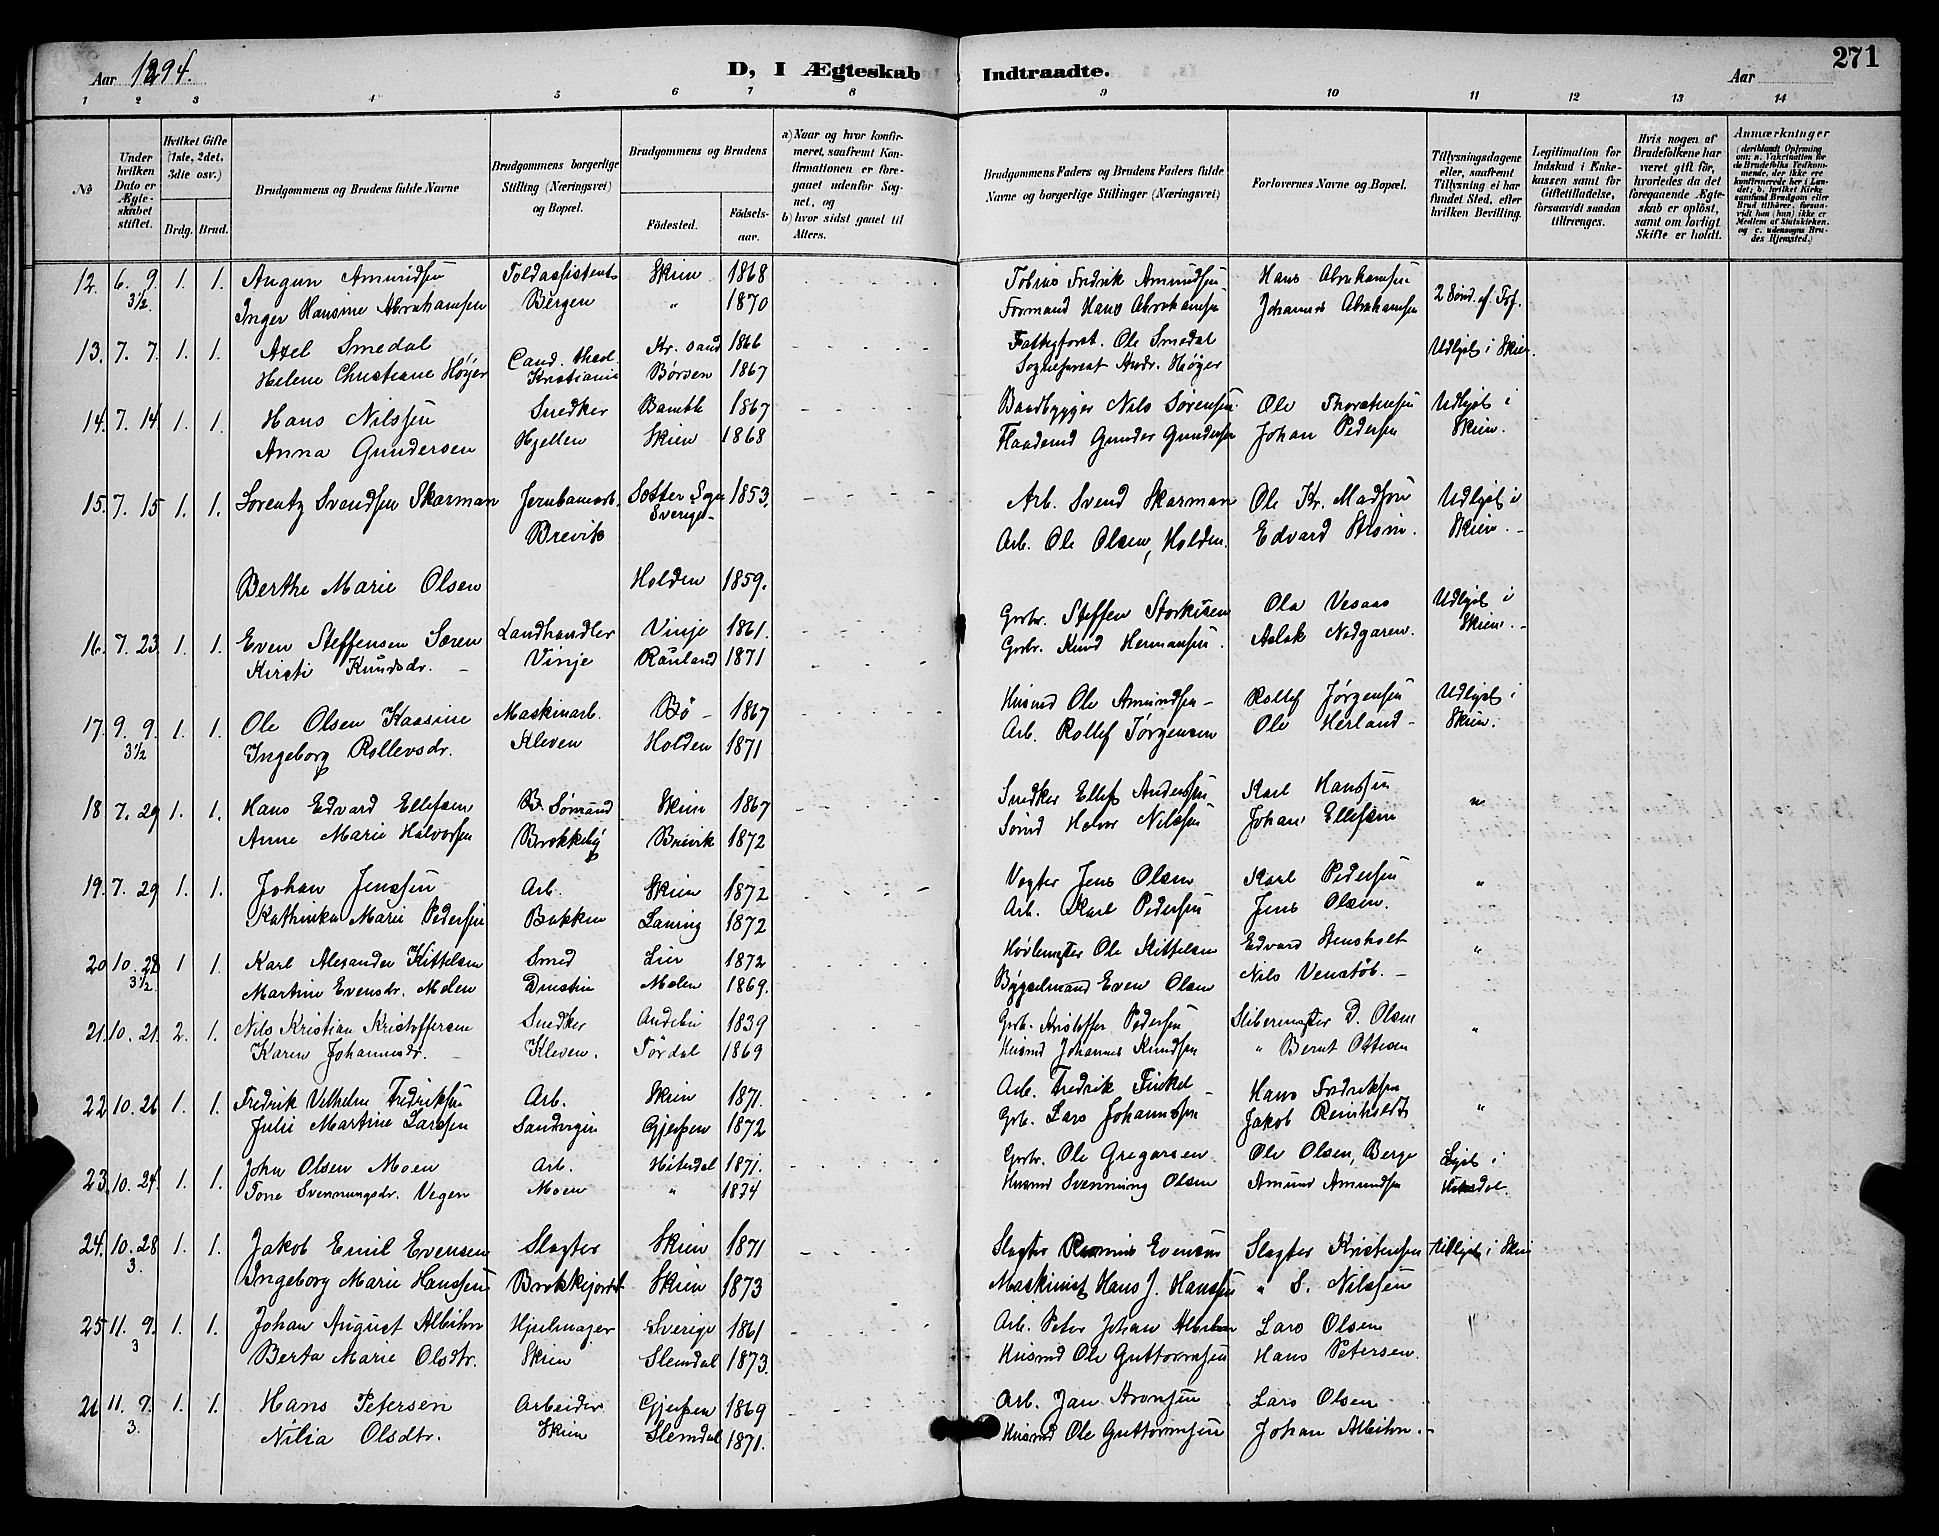 271
Aar 1894.
D, I Ægteskab Indtraadte.
Aar
1 2 3 4 5 6 7 8 9 10 11 12 13 14
No
Under hvilken Dato er Ægteskabet stiftet.
Hvilket Gifte (1ste, 2det, 3die osv.)
Brdg. Brud.
Brudgommens og Brudens fulde Navne
Brudgommens borgerlige Stilling (Næringsvei) og Bopæl.
Brudgommens og Brudens
Fødested. Fødselsaar.
a) Naar og hvor konfirmeret, saafremt Konfirmationen er foregaaet udenfor Sognet, og
b) hvor sidst gaaet til Alters.
Brudgommens Faders og Brudens Faders fulde Navne og borgerlige Stillinger (Næringsvei)
Forlovernes Navne og Bopæl.
Tillysningsdagene eller, saafremt Tillysning ei har fundet Sted, efter hvilken Bevilling.
Legitimation for Indskud i Enkekassen samt for Giftetilladelse, forsaavidt saadan tiltrænges.
Hvis nogen af Brudefolkene har været gift før, hvorledes da det foregaaende Ægteskab er opløst, samt om lovligt Skifte er holdt.
Anmærkninger
12. 6. 9. 1. 1. Augun Amundsen Toldassistent Skien 1868 Tobias Fredrik Amundsen Hans Abrahamsen
3½. Inger Hansine Abrahamsen Bergen " 1870 Formand Hans Abrahamsen Johannes Abrahamsen 2 Sønd. ef. Tref.
13. 7. 7. 1. 1. Axel Smedal Cand. theol. Kr. sand 1866 Fattigforst. Ole Smedal Udlyst i Skien.
Helene Christiane Höyer Kristiania Børsen 1867 Sogneprest Andr. Höyer
14. 7. 14 1. 1. Hans Nilssen Snedker Bamble 1867 Baadbygger Nils Sørensen Ole Thorstensen Udlyst i
Anna Gundersen Hjellen Skien 1868 Flaademd Gunder Gundersen Johan Pedersen Skien.
15. 7. 15 1. 1. Lorentz Svendsen Skarman Jernbanearb. Sogn 1853. Arb. Svend Skarman Ole Kr. Madsen Udlyst i
Brevik Sverige Arb. Ole Olsen, Holden. Edvard Strøm. Skien.
Berthe Marie Olsen Holden 1859.
16. 7. 23 1. 1. Even Steffensen Landhandler Vinje 1861. Grbr. Steffen Ola Vesaas Udlyst i
Kirsti Knudsdr. Vinje Rauland 1871 Grbr. Knud Hermansen. Aslak Nedgaren. Skien.
17. 9. 9. 1. 1. Ole Olsen Kaasine Maskinarb. Bö 1867 Husmd Ole Amundsen Rollef Jørgensen Udlyst i
3½ Ingeborg Rollevsdr. Kleven Holden 1871 Arb. Rollef Jørgensen Ole Herland Skien.
18 7. 29 1. 1. Hans Edvard Ellefsen Sømand Skien 1867 Snedker Ellef Anderssen Karl Hanssen "
Anne Marie Halvorsen Brekkeby Brevik 1872 Sømd Halvor Nilssen Johan Ellefsen
19. 7. 29 1. 1. Johan Jenssen Arb. Skien 1872 Vogter Jens Olsen Karl Pedersen "
Kathinka Marie Pedersen Bakken 1872 Arb. Karl Pedersen Jens Olsen.
20 10. 28 1 1. Karl Alexander Kittelsen Smed Lier 1872 Hövlemester Ole Kittelsen Edvard Stensholt "
3½. Martine Evensdr. Melen Melen 1869. Bygselmand Even Olsen Nils Venstöb.
21. 10. 21. 2. 1. Nils Kristian Kristoffersen Snedker Andebu 1839 Grb. Kristoffer Pedersen Slibermester D. Olsen "
Karen Johannesdr. Kleven. Tördal 1869 Husmd Johannes Knudsen " Bernt Ottesen
22 10. 26 1. 1. Fredrik Vilhelm Fredriksen Arb. Skien 1871. Arb. Fredrik Finkel Hans Fredriksen "
Julie Martine Larssen Sandvigen Gjerpen 1872 Grb. Lars Johannssen Jakob Reinholdt
23. 10. 24. 1. 1. John Olsen Moen Arb. Hitterdal 1871. Grbr. Ole Gregarsen Ole Olsen, Berge Lyst i
Tone Svennungsdr. Vegen Moen " 1874 Husmd Svennung Olsen Amund Amundsen Hiterdal.
24. 10. 28 1. 1. Jakob Emil Evensen Slagter Skien 1871 Slagter Evensen Slagter Kristensen Udlyst i Skien
3. Ingeborg Marie Hanssen Brekkejordet Skien 1873 Maskinist Hans J. Hanssen " S. Nilssen
25 11. 9. 1. 1. Johan August Albihn Hjulmager Sverige 1861 Arb. Peter Johan Albihn Lars Olsen "
3 Berta Marie Olsdtr. Skien Slemdal 1873. Husmd Ole Guttormsen Hans Petersen.
26 11. 9. 1. 1. Hans Petersen Arbeider Gjerpen 1869 Arb. Jan Aronsen Lars Olsen
3. Nilia Olsdtr. Skien Slemdal 1871. Husmd Ole Guttormsen Johan Albihn.